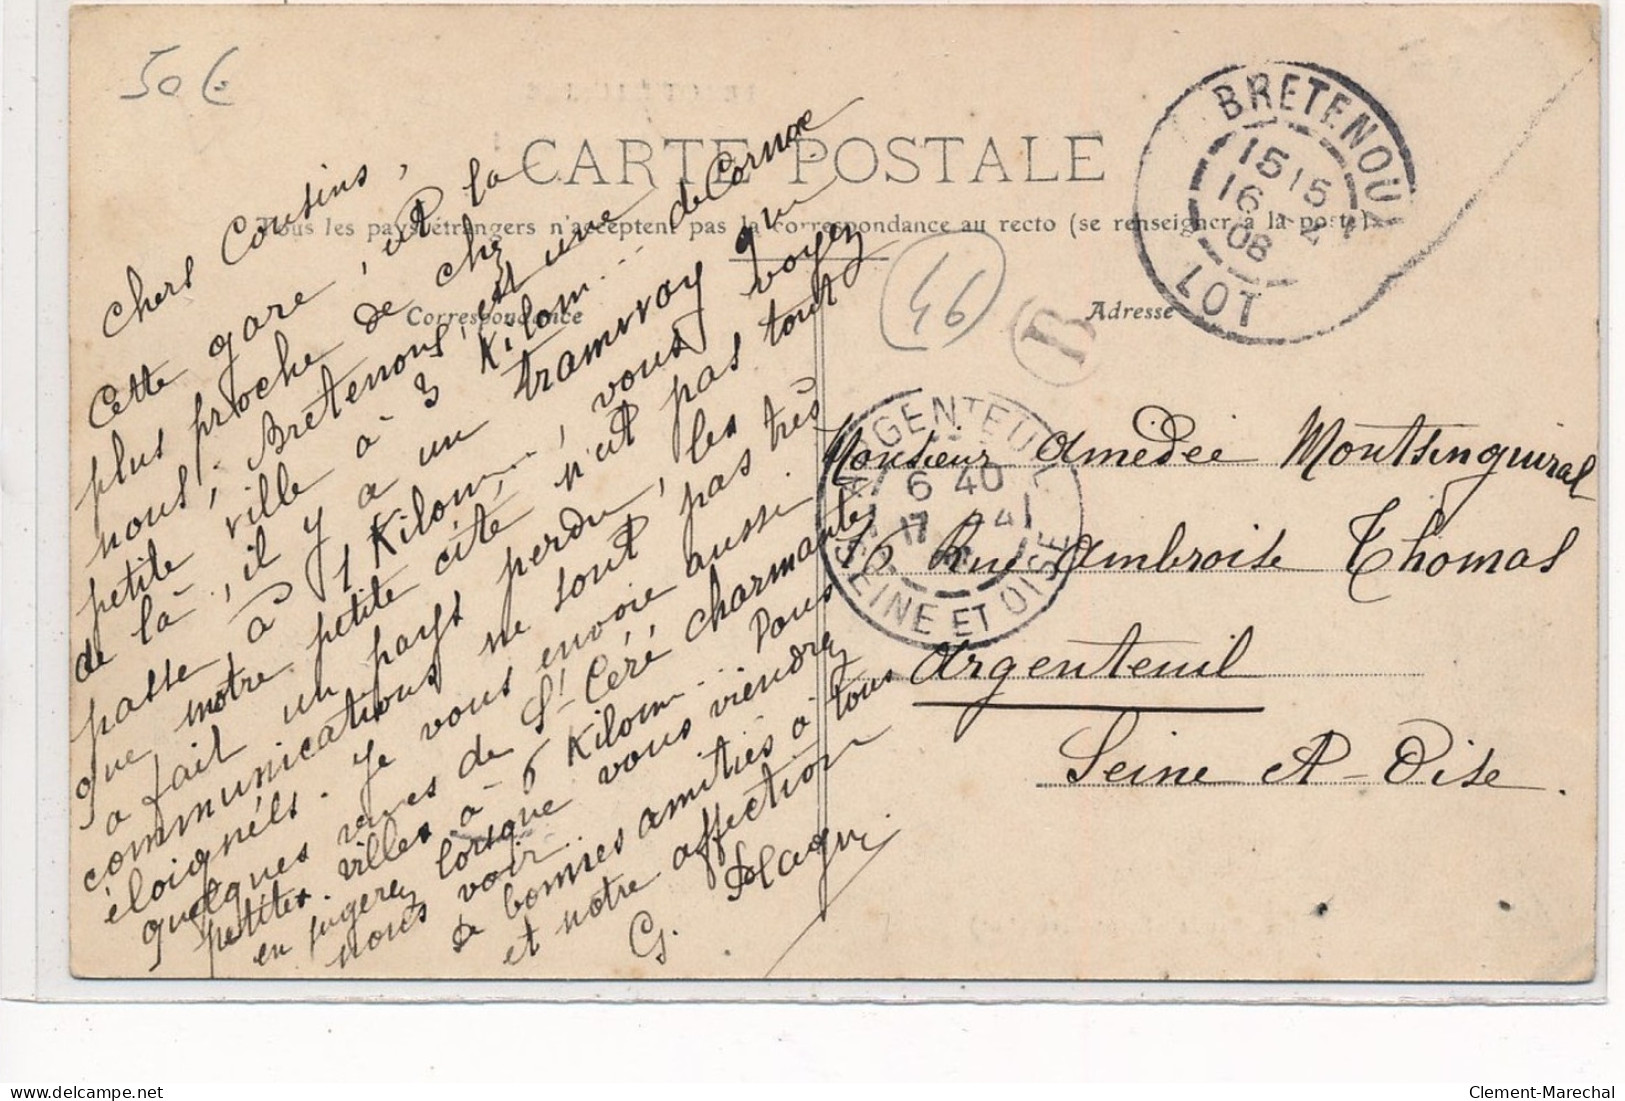 50 €
CARTE POSTALE
Tous les pays étrangers n'acceptent pas la correspondance au recto (se renseigner à la poste)
Correspondance
Adresse
46
B
BRETENOUX
15 15
16 - 4
08
LOT
ARGENTEUIL
6 40
17 - 4
SEINE ET OISE
Chers Cousins,
Cette gare, est la
plus proche de chez
nous; Bretenoux, est une
petite ville à 3 Kilom... de Cornac
de là, il y a un tramway qui
passe, à 1 Kilom..., vous voyez
que notre petite cité, n'est pas tout
a fait un pays perdu, les
communications ne sont pas très
éloignées. Je vous envoie aussi
quelques vues de St Céré charmante
petites villes à 6 Kilom... Vous
en jugerez lorsque vous viendrez
nous voir.
De bonnes amitiés à tous
et notre affection
G.
Monsieur Amédée Montsinquiral
16, Rue Ambroise Thomas
Argenteuil
Seine et-Oise.
delcampe.net
Clement-Marechal